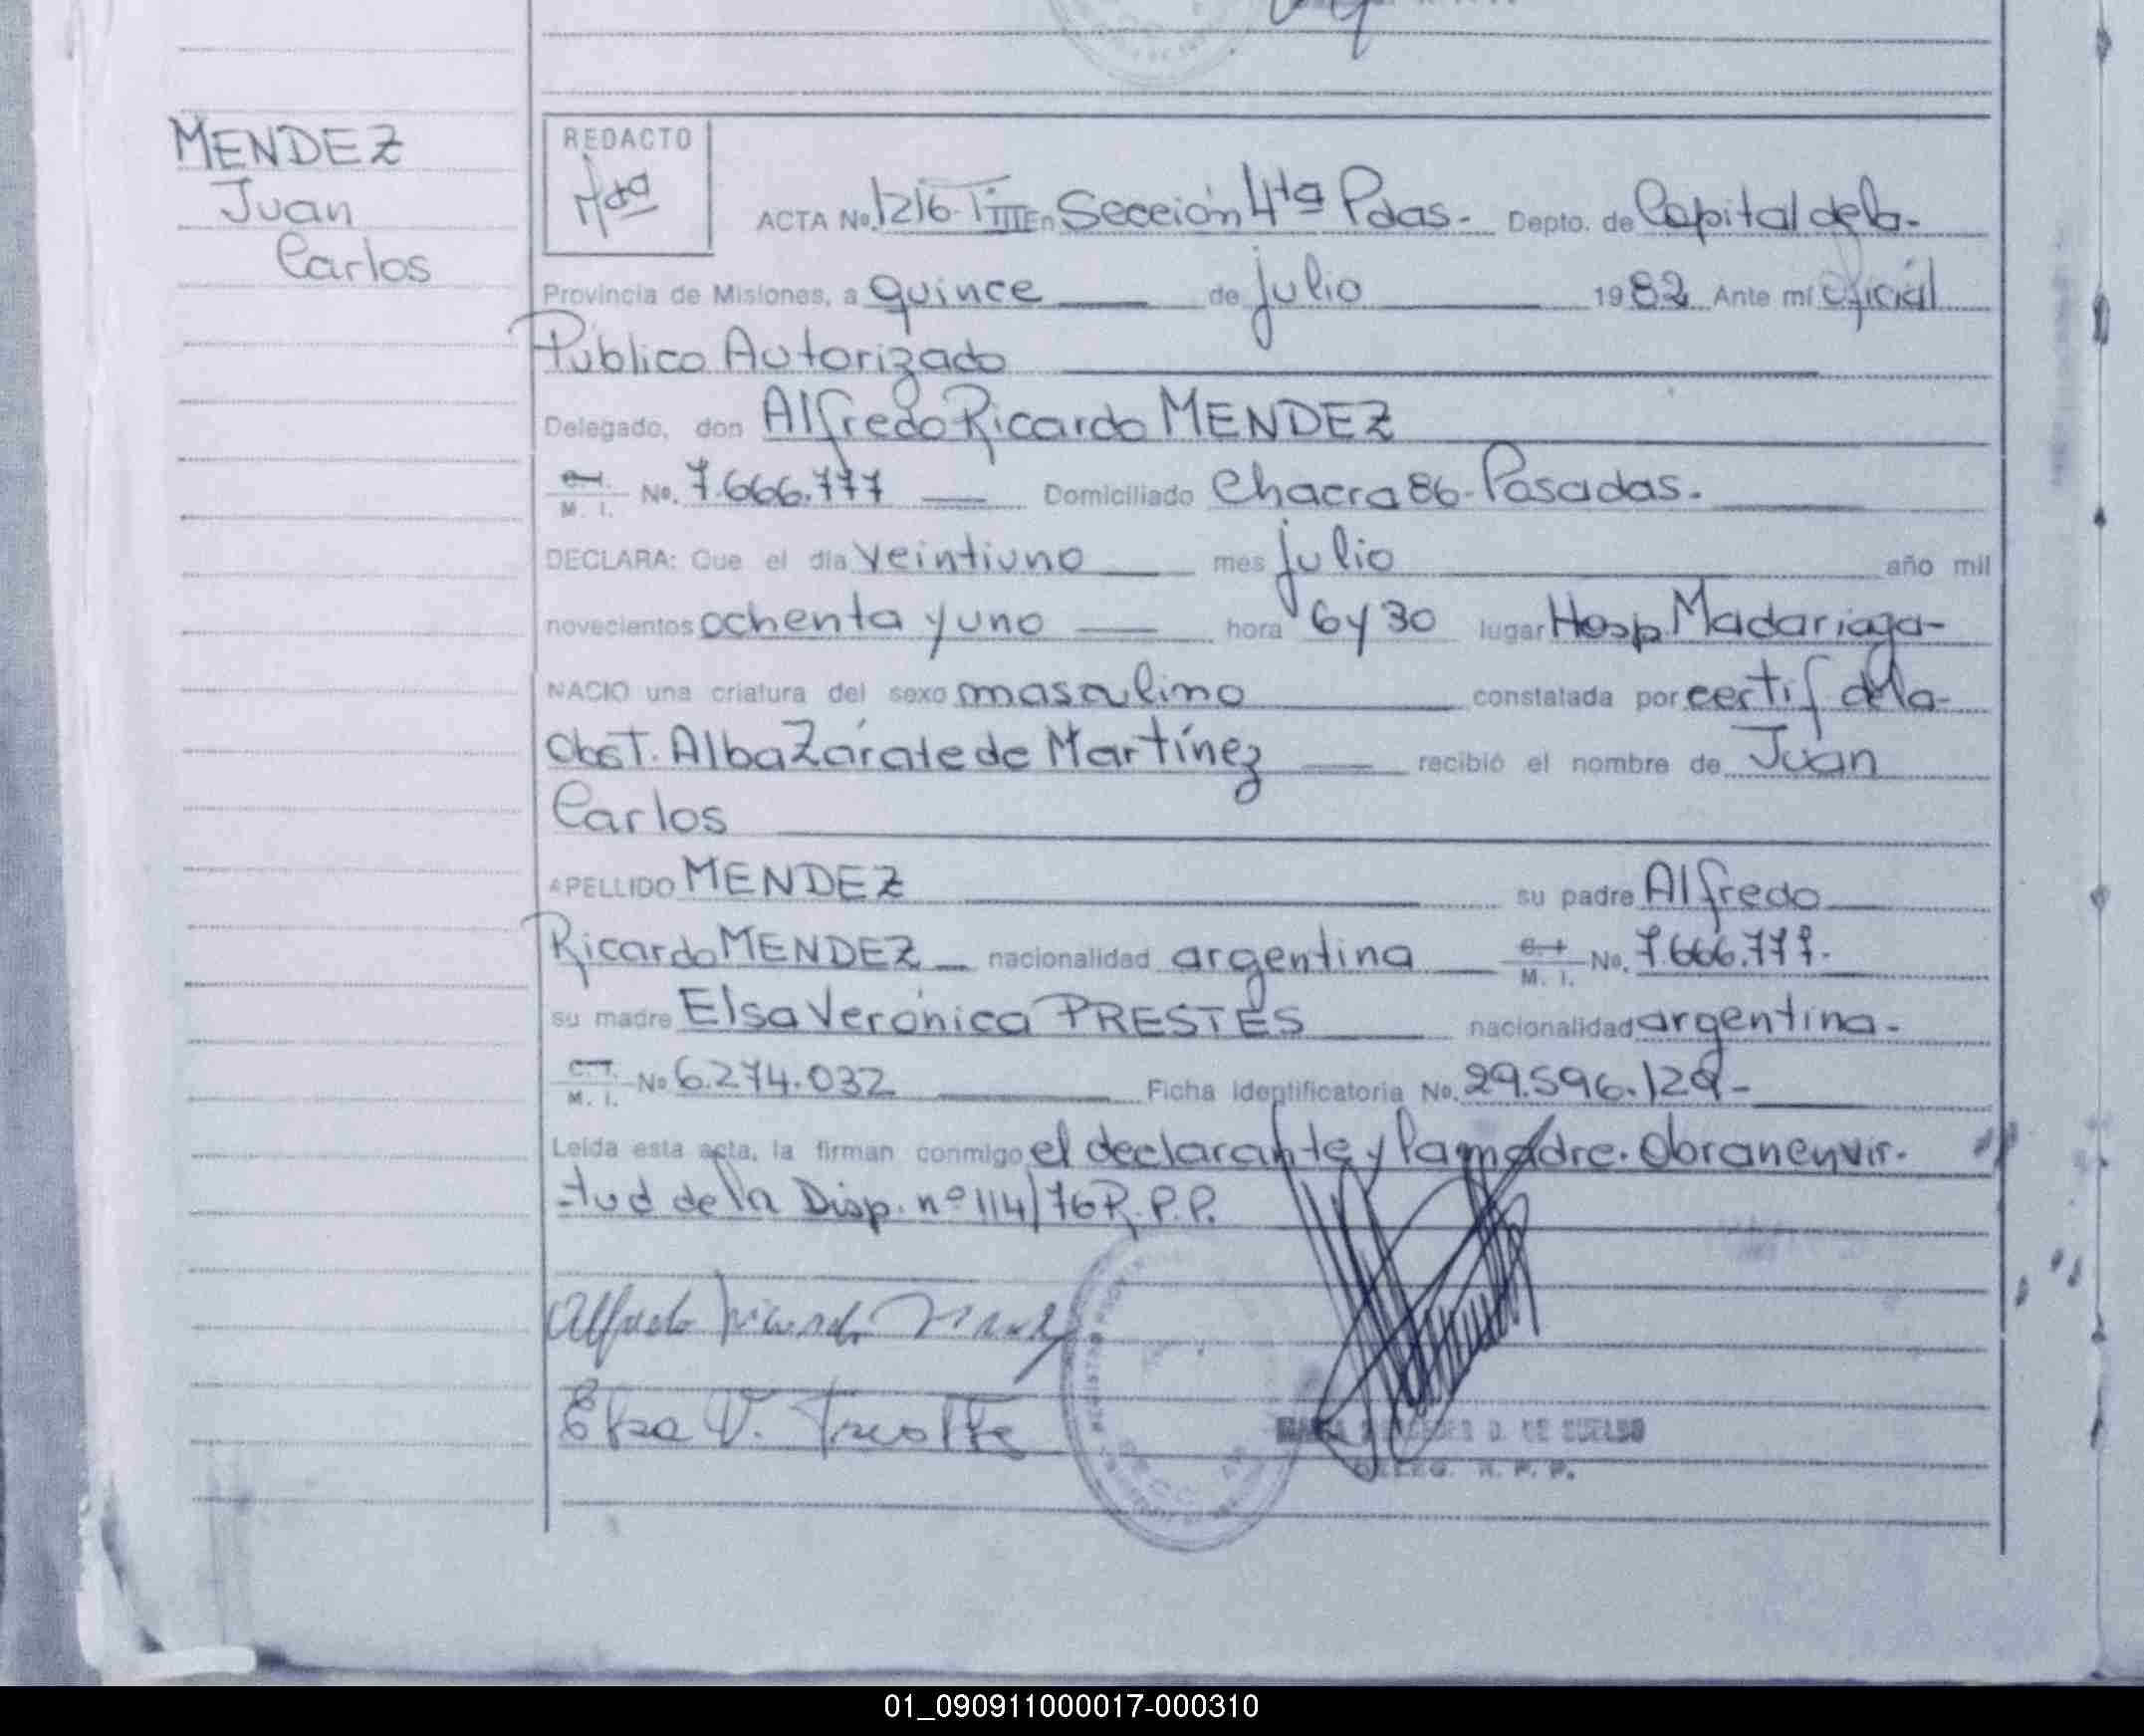 MENDEZ
Juan
Carlos
REDACTO
ACTA No. 1216-TIIII En Sección 4ta Pdas.- Depto. de Capital de la-
Provincia de Misiones, a quince de julio 1982 Ante mí Oficial
Público Autorizado
Delegado, don Alfredo Ricardo MENDEZ
M. I. No. 7.666.777 Domiciliado Chacra 86-Posadas.
DECLARA: Que el día veintiuno mes julio año mil
novecientos ochenta y uno hora 6 y 30 lugar Hosp. Madariaga-
NACIO una criatura del sexo masculino constatada por certif de la-
Obst. Alba Zárate de Martínez recibió el nombre de Juan
Carlos
APELLIDO MENDEZ su padre Alfredo
Ricardo MENDEZ nacionalidad argentina M. I. No. 7.666.777.
su madre Elsa Verónica PRESTES nacionalidad argentina-
C.I. M. I. No 6.274.032 Ficha Identificatoria No. 29.596.129-
Leída esta acta, la firman conmigo el declarante y la madre. Obran en vir-
tud de la Disp. nº 114/76 R.P.P.
Alfredo Ricardo Mendez
Elsa V. Prestes
D. DE SUELDO
DELEG. R. P. P.
01_090911000017-000310